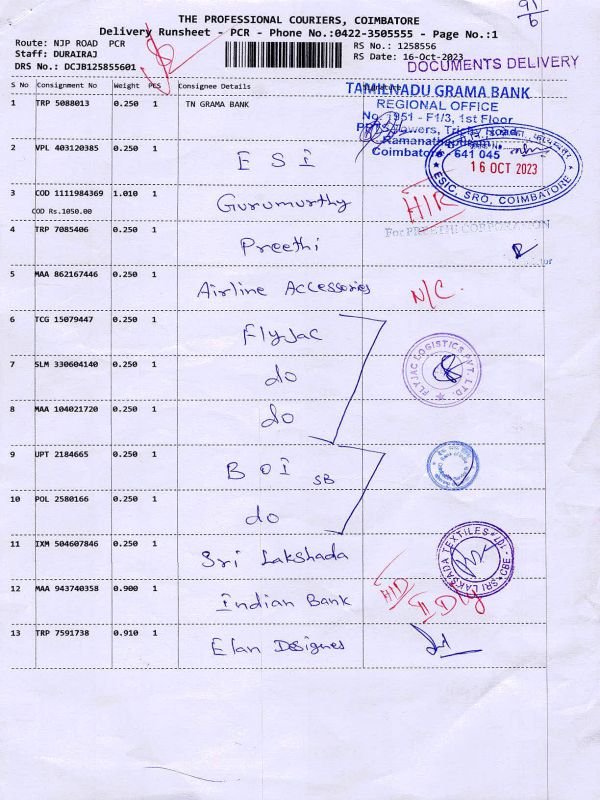 91/6
THE PROFESSIONAL COURIERS, COIMBATORE
Delivery Runsheet - PCR - Phone No.:0422-3505555 - Page No.:1
Route: NJP ROAD PCR
RS No.: 1258556
Staff: DURAIRAJ
RS Date: 16-Oct-2023
DRS No.: DCJB125855601
DOCUMENTS DELIVERY
S No Consignment No Weight PCS Consignee Details
TAMILNADU GRAMA BANK
REGIONAL OFFICE
No. 1951 - F1/3, 1st Floor
Towers, Trichy Road,
Ramanathapuram,
Coimbatore - 641 045
1 TRP 5088013 0.250 1 TN GRAMA BANK
2 VPL 403120385 0.250 1 ESI
16 OCT 2023
ESIC, SRO, COIMBATORE
3 COD 1111984369 1.010 1 Gurumurthy
COD Rs.1050.00
4 TRP 7085406 0.250 1 Preethi
For PREETHI CORPORATION
5 MAA 862167446 0.250 1 Airline Accessories N/C.
6 TCG 15079447 0.250 1 Flyjac
7 SLM 330604140 0.250 1 do
FLYJAC LOGISTICS PVT. LTD.
8 MAA 104021720 0.250 1 do
9 UPT 2184665 0.250 1 BOI SB
10 POL 2580166 0.250 1 do
11 IXM 504607846 0.250 1 Sri Lakshada
SRI LAKSADA TEXTILES (P) LTD CBE
12 MAA 943740358 0.900 1 Indian Bank
13 TRP 7591738 0.910 1 Elan Designes